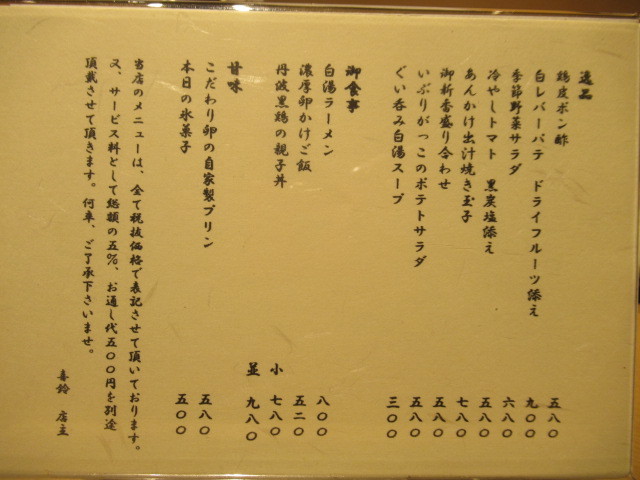 逸品
鶏皮ポン酢 五八〇
白レバーパテ ドライフルーツ添え 九〇〇
季節野菜サラダ 六八〇
冷やしトマト 黒炭塩添え 五八〇
あんかけ出汁焼き玉子 七八〇
御新香盛り合わせ 五八〇
いぶりがっこのポテトサラダ 五八〇
ぐい呑み白湯スープ 三〇〇
御食事
白湯ラーメン 八〇〇
濃厚卵かけご飯 五二〇
丹波黒鶏の親子丼 小 七八〇
並 九八〇
甘味
こだわり卵の自家製プリン 五八〇
本日の氷菓子 五〇〇
当店のメニューは、全て税抜価格で表記させて頂いております。
又、サービス料として総額の五%、お通し代五〇〇円を別途
頂戴させて頂きます。何卒、ご了承下さいませ。
喜鈴 店主